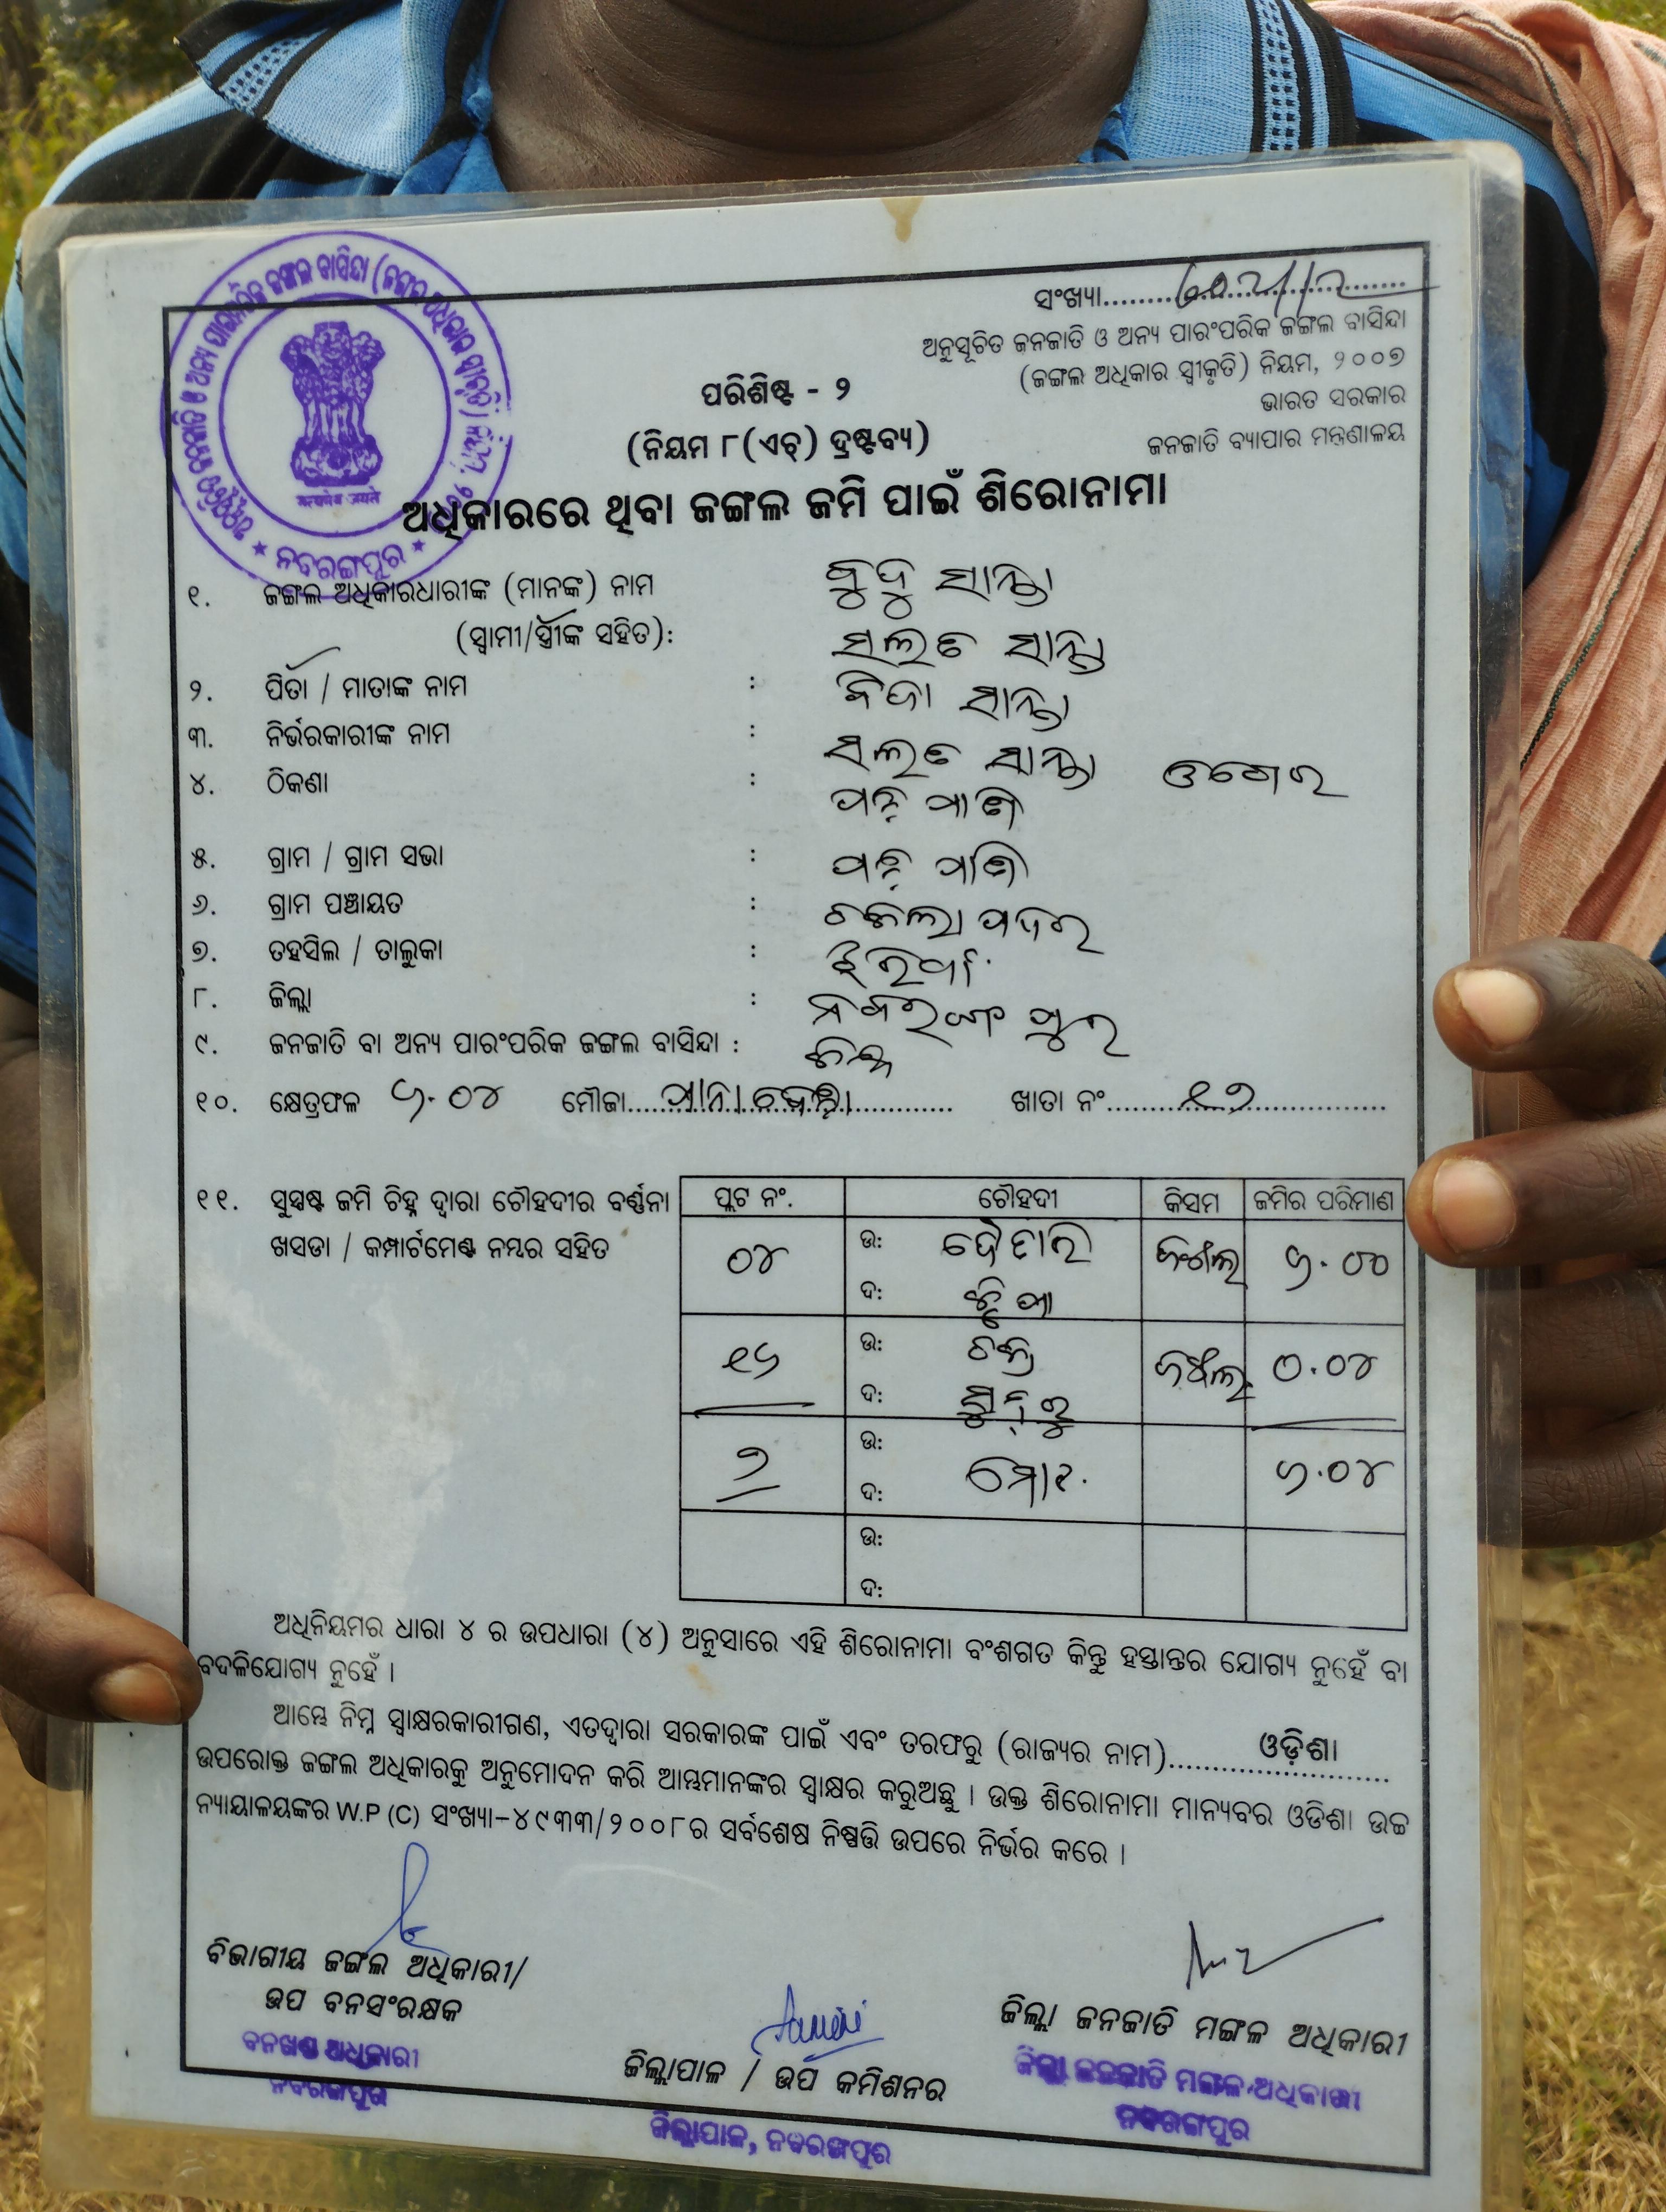 ସଂଖ୍ୟା
ଅନୁସୂଚିତ ଜନଜାତି ଓ ଅନ୍ୟ ପାରଂପରିକ ଜଙ୍ଗଲ ବାସିନ୍ଦା
(ଜଙ୍ଗଲ ଅଧିକାର ସ୍ୱୀକୃତି) ନିୟମ, ୨୦୦୭
ଭାରତ ସରକାର
ଜନଜାତି ବ୍ୟାପାର ମନ୍ତ୍ରଣାଳୟ
सत्यमेव जयते
★ ନବରଙ୍ଗପୁର ★
ପରିଶିଷ୍ଟ - ୨
(ନିୟମ ୮(ଏଚ୍) ଦ୍ରଷ୍ଟବ୍ୟ)
ଅଧିକାରରେ ଥିବା ଜଙ୍ଗଲ ଜମି ପାଇଁ ଶିରୋନାମା
୧. ଜଙ୍ଗଲ ଅଧିକାରଧାରୀଙ୍କ (ମାନଙ୍କ) ନାମ ବୁଦୁ ସାନ୍ତା
(ସ୍ୱାମୀ/ସ୍ତ୍ରୀଙ୍କ ସହିତ): ସାନ୍ତା
୨. ପିତା / ମାତାଙ୍କ ନାମ : ସାନ୍ତା
୩. ନିର୍ଭରକାରୀଙ୍କ ନାମ : ସାନ୍ତା
୪. ଠିକଣା :
୫. ଗ୍ରାମ / ଗ୍ରାମ ସଭା :
୬. ଗ୍ରାମ ପଞ୍ଚାୟତ :
୭. ତହସିଲ / ତାଲୁକା :
୮. ଜିଲ୍ଲା : ନବରଙ୍ଗପୁର
୯. ଜନଜାତି ବା ଅନ୍ୟ ପାରଂପରିକ ଜଙ୍ଗଲ ବାସିନ୍ଦା :
୧୦. କ୍ଷେତ୍ରଫଳ ୬.୦୪ ମୌଜା ଖାତା ନଂ ୧୭
୧୧. ସୁସ୍ପଷ୍ଟ ଜମି ଚିହ୍ନ ଦ୍ୱାରା ଚୌହଦୀର ବର୍ଣ୍ଣନା
ଖସଡା / କମ୍ପାର୍ଟମେଣ୍ଟ ନମ୍ବର ସହିତ
ପ୍ଲଟ ନଂ. ଚୌହଦୀ କିସମ ଜମିର ପରିମାଣ
୦୪ ଉ: ଜଂଗଲ ୬.୦୦
ଦ:
୧୬ ଉ: ୦.୦୪
ଦ:
୨ ଉ: ୬.୦୪
ଦ: ମୋଟ
ଉ:
ଦ:
ଅଧିନିୟମର ଧାରା ୪ ର ଉପଧାରା (୪) ଅନୁସାରେ ଏହି ଶିରୋନାମା ବଂଶଗତ କିନ୍ତୁ ହସ୍ତାନ୍ତର ଯୋଗ୍ୟ ନୁହେଁ ବା
ବଦଳିଯୋଗ୍ୟ ନୁହେଁ ।
ଆମ୍ଭେ ନିମ୍ନ ସ୍ୱାକ୍ଷରକାରୀଗଣ, ଏତଦ୍ୱାରା ସରକାରଙ୍କ ପାଇଁ ଏବଂ ତରଫରୁ (ରାଜ୍ୟର ନାମ) ଓଡ଼ିଶା
ଉପରୋକ୍ତ ଜଙ୍ଗଲ ଅଧିକାରକୁ ଅନୁମୋଦନ କରି ଆମ୍ଭମାନଙ୍କର ସ୍ୱାକ୍ଷର କରୁଅଛୁ । ଉକ୍ତ ଶିରୋନାମା ମାନ୍ୟବର ଓଡିଶା ଉଚ୍ଚ
ନ୍ୟାୟାଳୟଙ୍କର W.P (C) ସଂଖ୍ୟା-୪୯୩୩/୨୦୦୮ର ସର୍ବଶେଷ ନିଷ୍ପତ୍ତି ଉପରେ ନିର୍ଭର କରେ ।
ବିଭାଗୀୟ ଜଙ୍ଗଲ ଅଧିକାରୀ/
ଉପ ବନସଂରକ୍ଷକ
ବନଖଣ୍ଡ ଅଧିକାରୀ
ନବରଙ୍ଗପୁର
ଜିଲ୍ଲାପାଳ / ଉପ କମିଶନର
ଜିଲ୍ଲାପାଳ, ନବରଙ୍ଗପୁର
ଜିଲ୍ଲା ଜନଜାତି ମଙ୍ଗଳ ଅଧିକାରୀ
ଜିଲ୍ଲା ଜନଜାତି ମଙ୍ଗଳ ଅଧିକାରୀ
ନବରଙ୍ଗପୁର